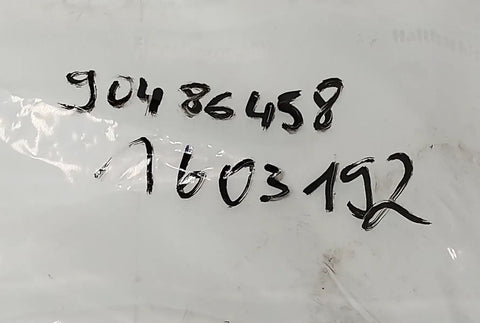 90486458
1603192